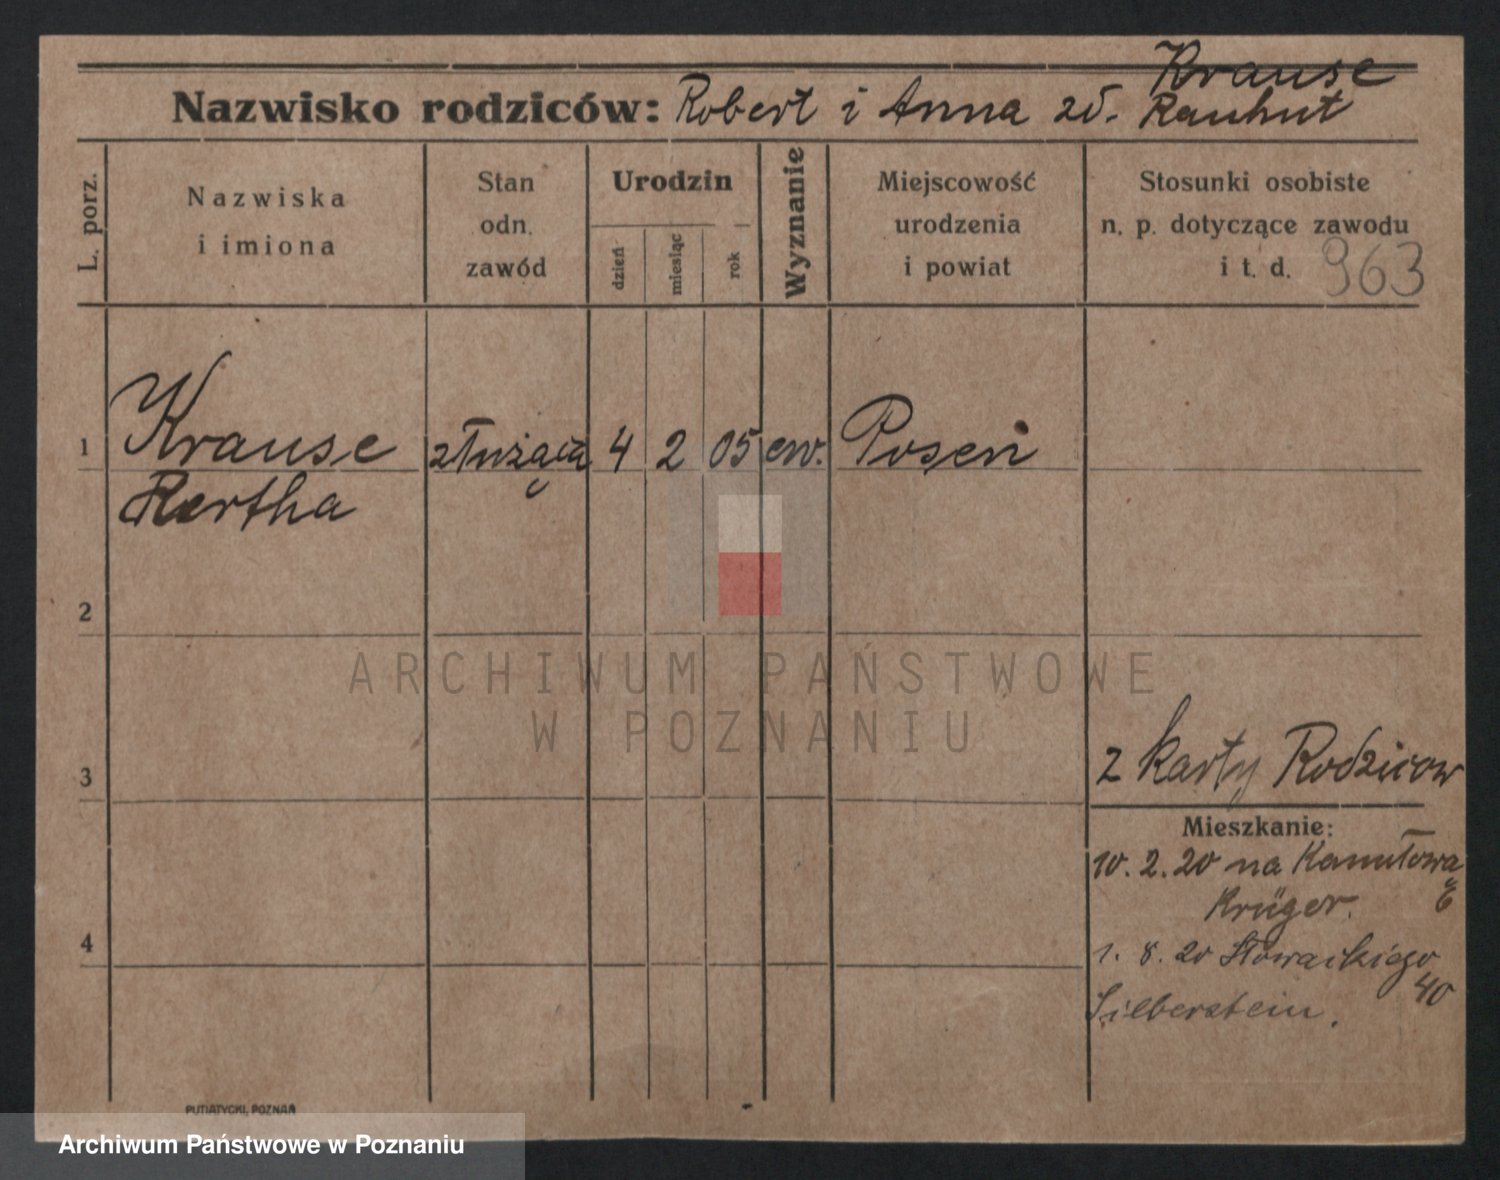 Krause
Nazwisko rodziców: Robert i Anna zd. Rauhut
L. porz.
Nazwiska
i imiona
Stan
odn.
zawód
Urodzin
dzień
miesiąc
rok
Wyznanie
Miejscowość
urodzenia
i powiat
Stosunki osobiste
n. p. dotyczące zawodu
i t. d.
963
1 Krause służąca 4 2 05 ew. Posen
Bertha
2
ARCHIWUM PAŃSTWOWE
W POZNANIU
3
z karty Rodziców
Mieszkanie:
10. 2. 20 na
6
Krüger.
4
1. 8. 20 Słowackiego
40
Silberstein.
PUTIATYCKI, POZNAŃ
Archiwum Państwowe w Poznaniu